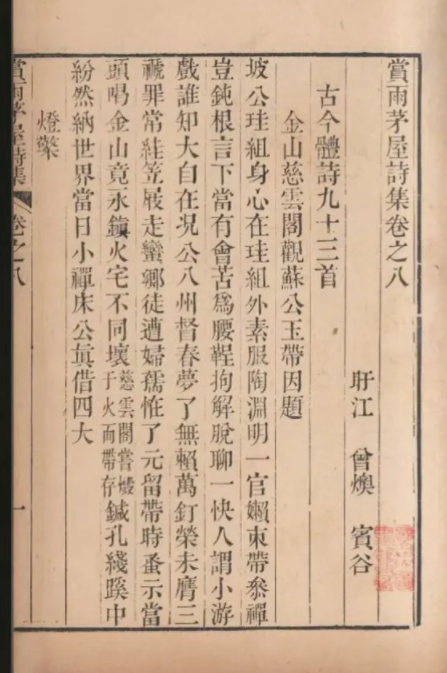 賞雨茅屋詩集卷之八
盱江　曾燠　賓谷
古今體詩九十三首
金山慈雲閣觀蘇公玉帶因題
坡公珪組身心在珪組外素服陶淵明一官嬾束帶叅禪
豈鈍根言下當有會苦爲腰鞓拘解脫聊一快人謂小游
戲誰知大自在況公八州督春夢了無賴萬釘榮未膺三
褫罪常絓笠屐走蠻鄉徒遭婦孺恠了元留帶時蚤示當
頭喝金山竟永鎭火宅不同壞慈雲閣嘗燬于火而帶存鍼孔綫蹊中
紛然納世界當日小禪床公眞借四大
燈檠
賞雨茅屋詩集
卷之八
一